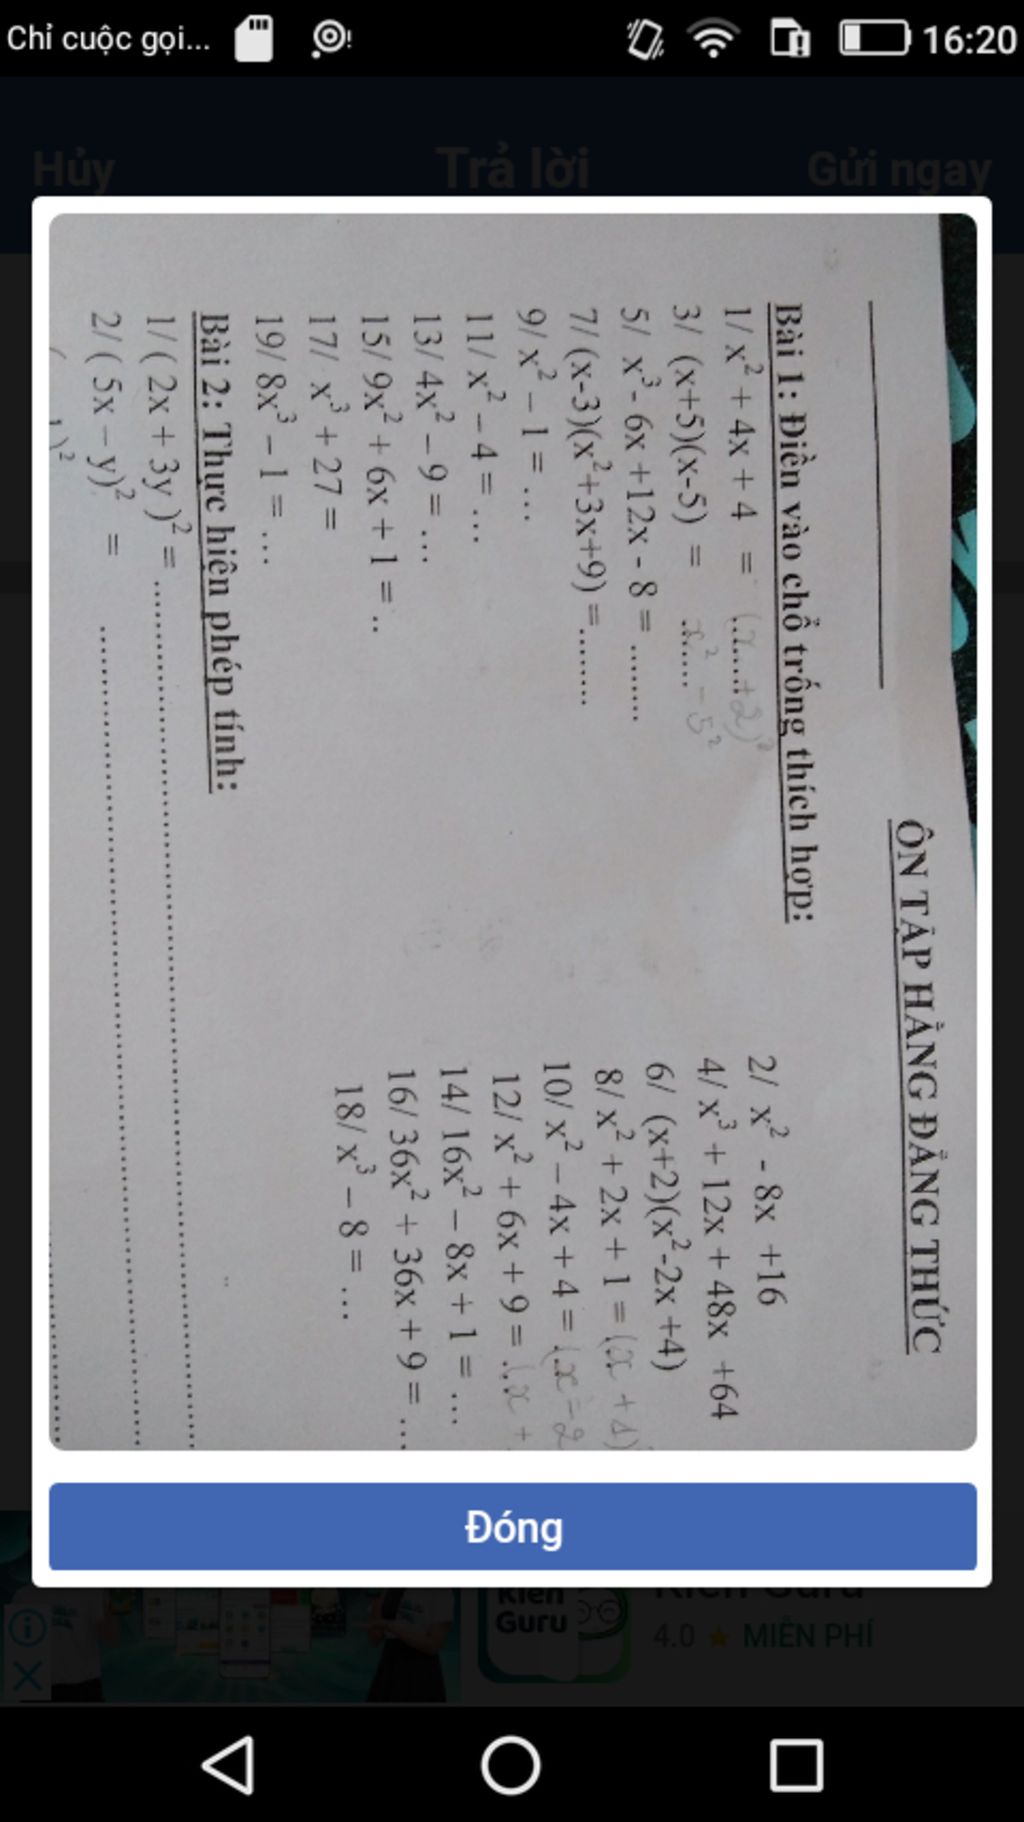 Chỉ cuộc gọi... 16:20
Hủy Trả lời Gửi ngay
ÔN TẬP HẰNG ĐẲNG THỨC
Bài 1: Điền vào chổ trống thích hợp:
1/ x² + 4x + 4 = (x......+2)²
2/ x² - 8x +16
3/ (x+5)(x-5) = x²...... - 5²
4/ x³ + 12x + 48x +64
5/ x³ - 6x +12x - 8 = ........
6/ (x+2)(x²-2x +4)
7/ (x-3)(x²+3x+9) =........
8/ x² + 2x + 1 = (x + 1)
9/ x² – 1 = ...
10/ x² – 4x + 4 = (x - 2
11/ x² – 4 = ...
12/ x² + 6x + 9 = ..(x +
13/ 4x² – 9 = ...
14/ 16x² – 8x + 1 = ...
15/ 9x² + 6x + 1 = ..
16/ 36x² + 36x + 9 = ...
17/ x³ + 27 =
18/ x³ – 8 = ...
19/ 8x³ – 1 = ...
Bài 2: Thực hiện phép tính:
1/ ( 2x + 3y )² = ........................................
2/ ( 5x – y)² = ........................................
Đóng
Kien Guru
Kien Guru
4.0 ★ MIỄN PHÍ